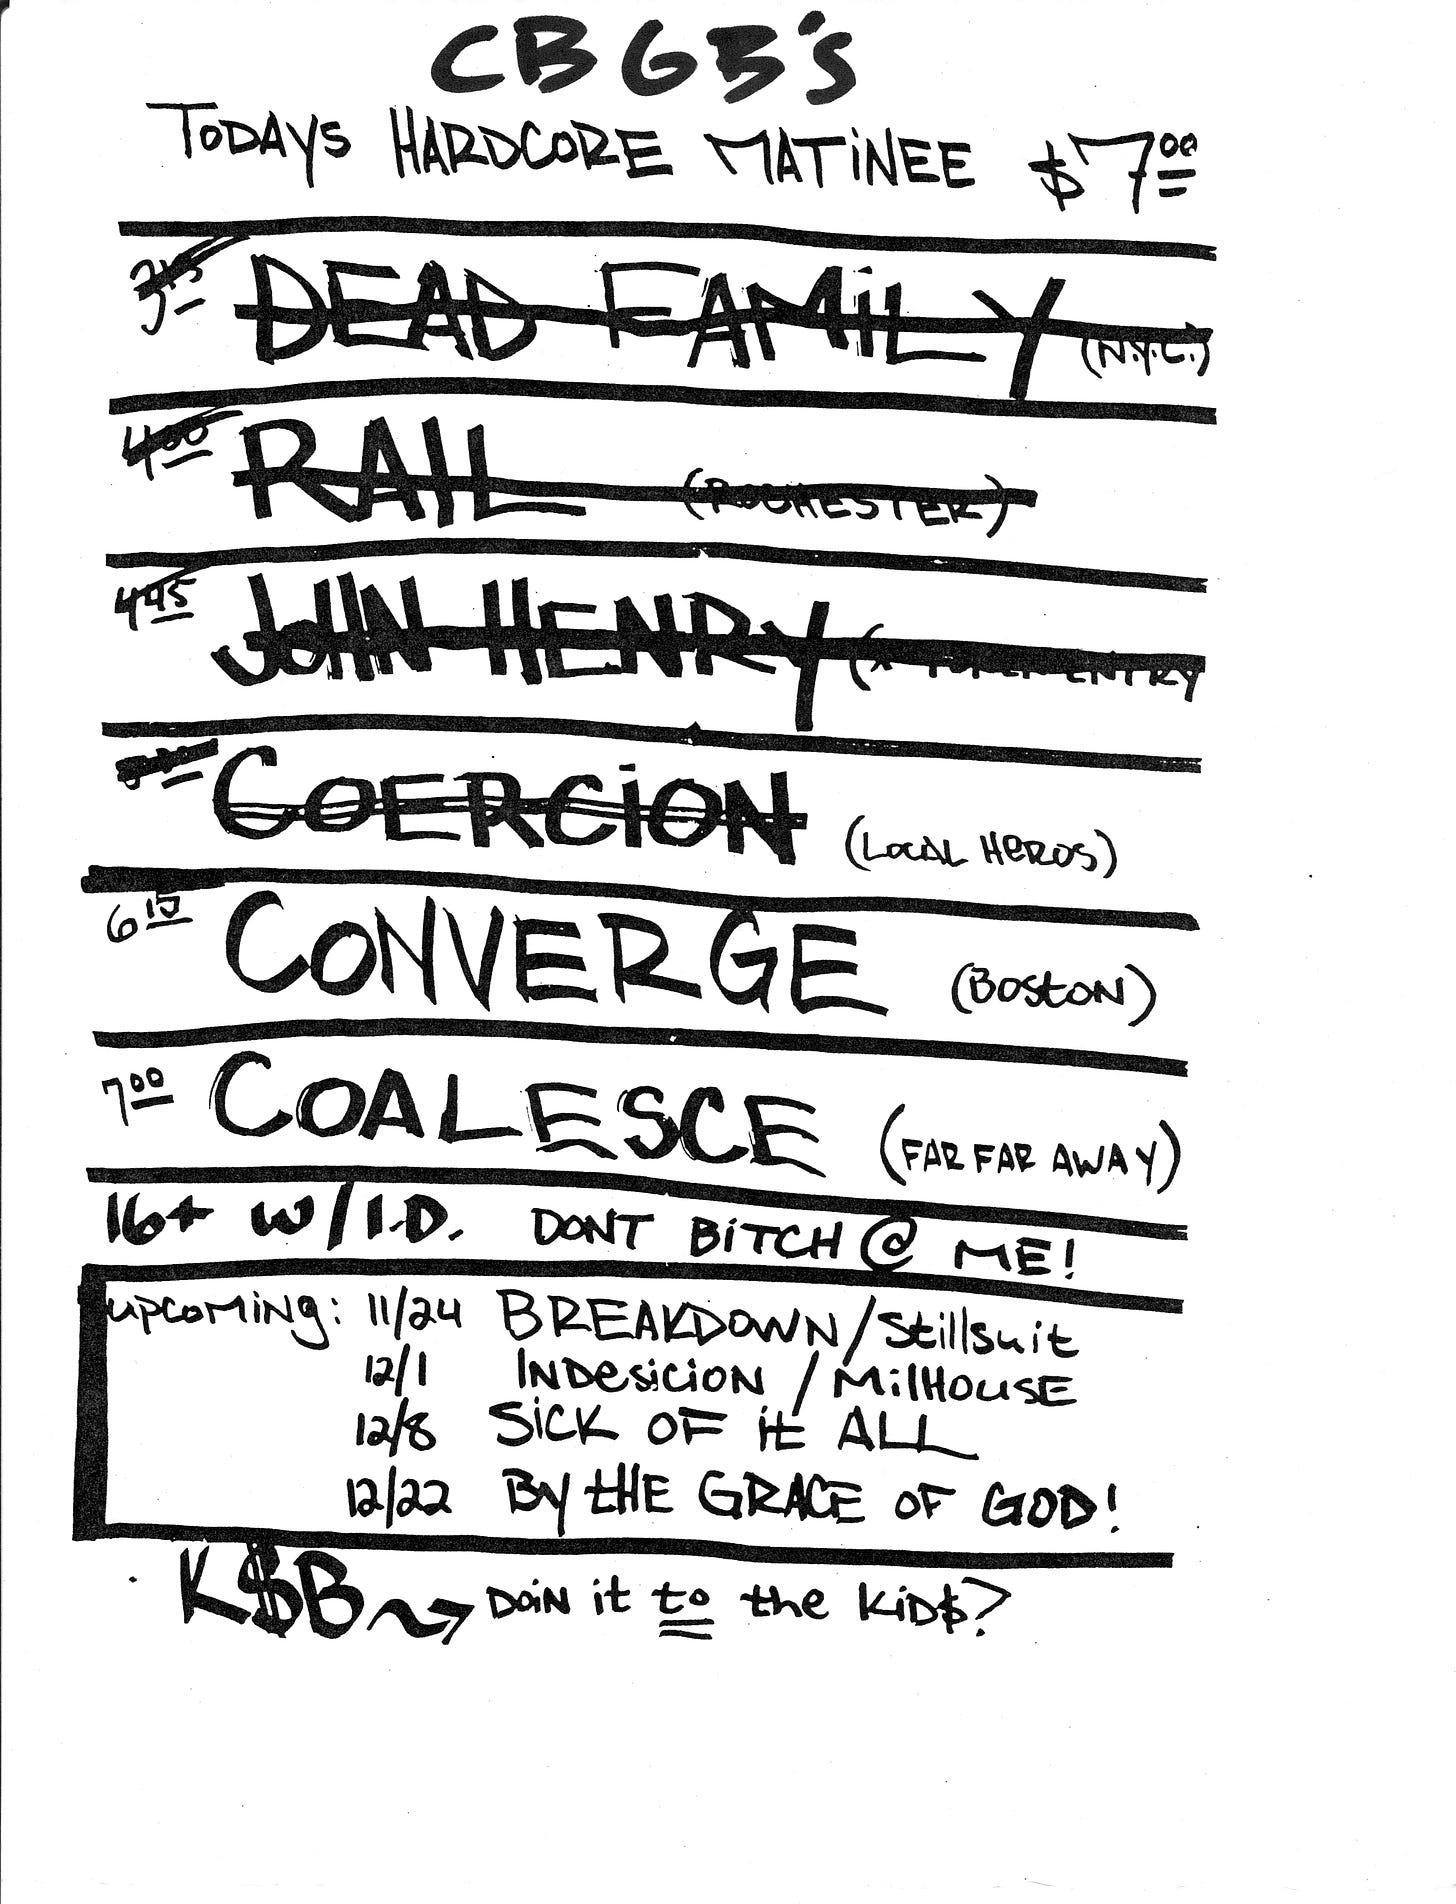 CBGB's
TODAYS HARDCORE MATINEE $7.00
3:45 DEAD FAMILY (N.Y.C.)
4:00 RAIL (ROCHESTER)
4:45 JOHN HENRY ENTRY
COERCION (LOCAL HEROS)
6:15 CONVERGE (BOSTON)
7:00 COALESCE (FAR FAR AWAY)
16+ W/I.D. DONT BITCH @ ME!
upcoming: 11/24 BREAKDOWN/Stillsuit
12/1 INDesicioN / MilHOUSE
12/8 SICK OF it ALL
12/22 By tHE GRACE OF GOD!
K$B DOIN it to the KID$?